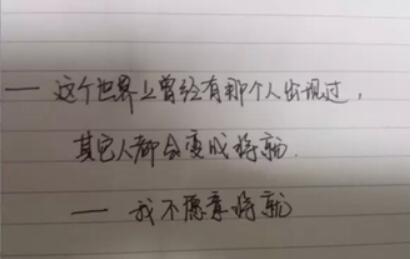 — 这个世界上曾经有那个人出现过，
其它人都会变成将就.
— 我不愿意将就